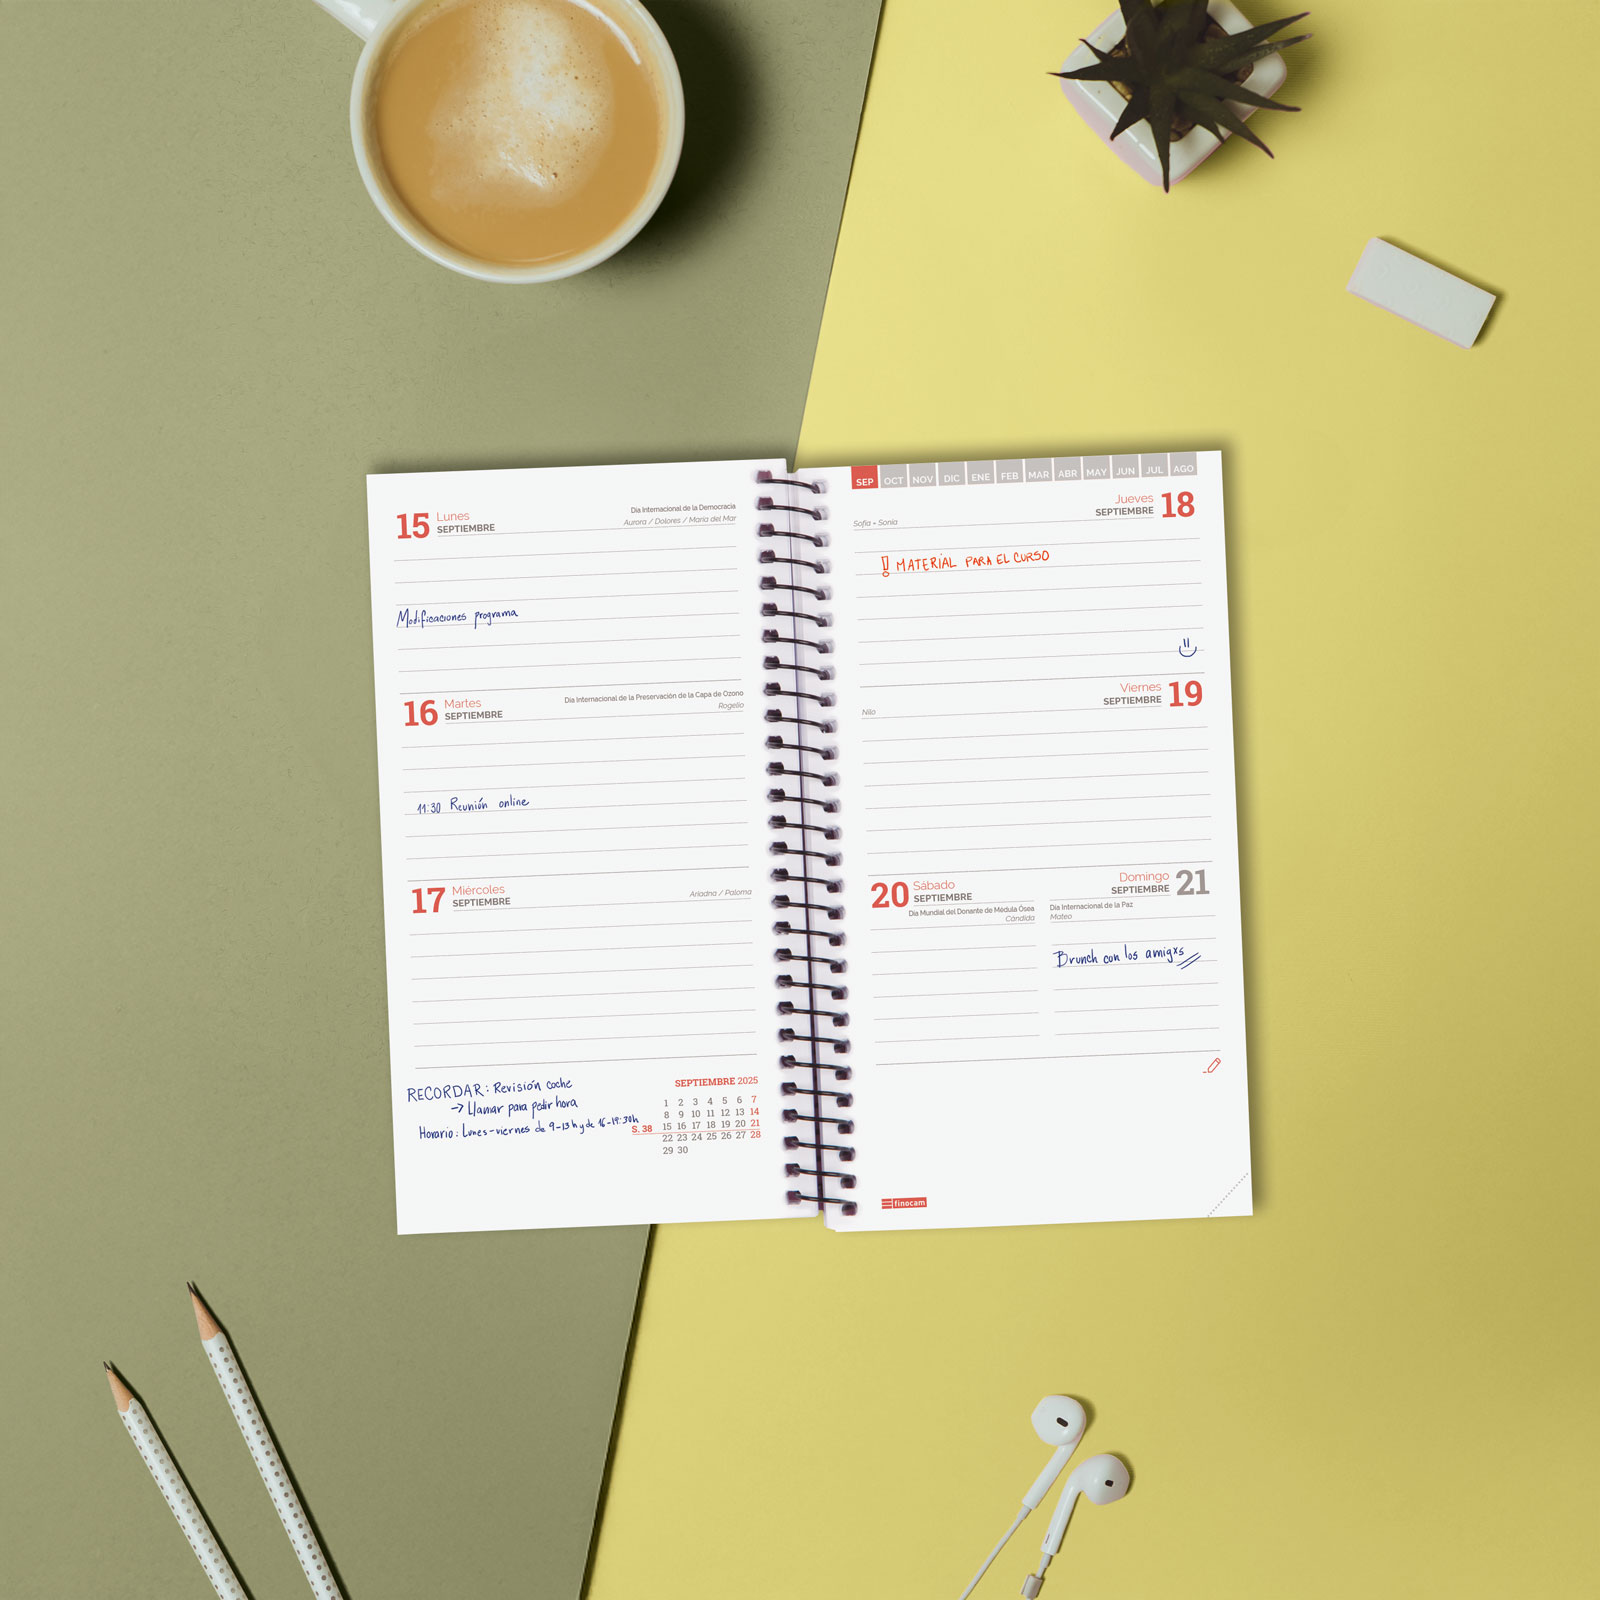 15 Lunes
SEPTIEMBRE
Día Internacional de la Democracia
Aurora / Dolores / María del Mar
Modificaciones programa
16 Martes
SEPTIEMBRE
Día Internacional de la Preservación de la Capa de Ozono
Rogelio
11:30 Reunión online
17 Miércoles
SEPTIEMBRE
Ariadna / Paloma
RECORDAR: Revisión coche
→ Llamar para pedir hora
Horario: Lunes-viernes de 9-13h y de 16-19:30h
SEPTIEMBRE 2025
1 2 3 4 5 6 7
8 9 10 11 12 13 14
S. 38 15 16 17 18 19 20 21
22 23 24 25 26 27 28
29 30
SEP OCT NOV DIC ENE FEB MAR ABR MAY JUN JUL AGO
Jueves 18
SEPTIEMBRE
Sofía - Sonia
! MATERIAL PARA EL CURSO
Viernes 19
SEPTIEMBRE
Nilo
20 Sábado
SEPTIEMBRE
Día Mundial del Donante de Médula Ósea
Cándida
Domingo 21
SEPTIEMBRE
Día Internacional de la Paz
Mateo
Brunch con los amigxs
finocam